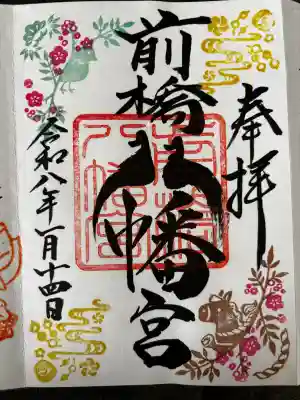 奉拝
前橋八幡宮
令和八年一月十四日